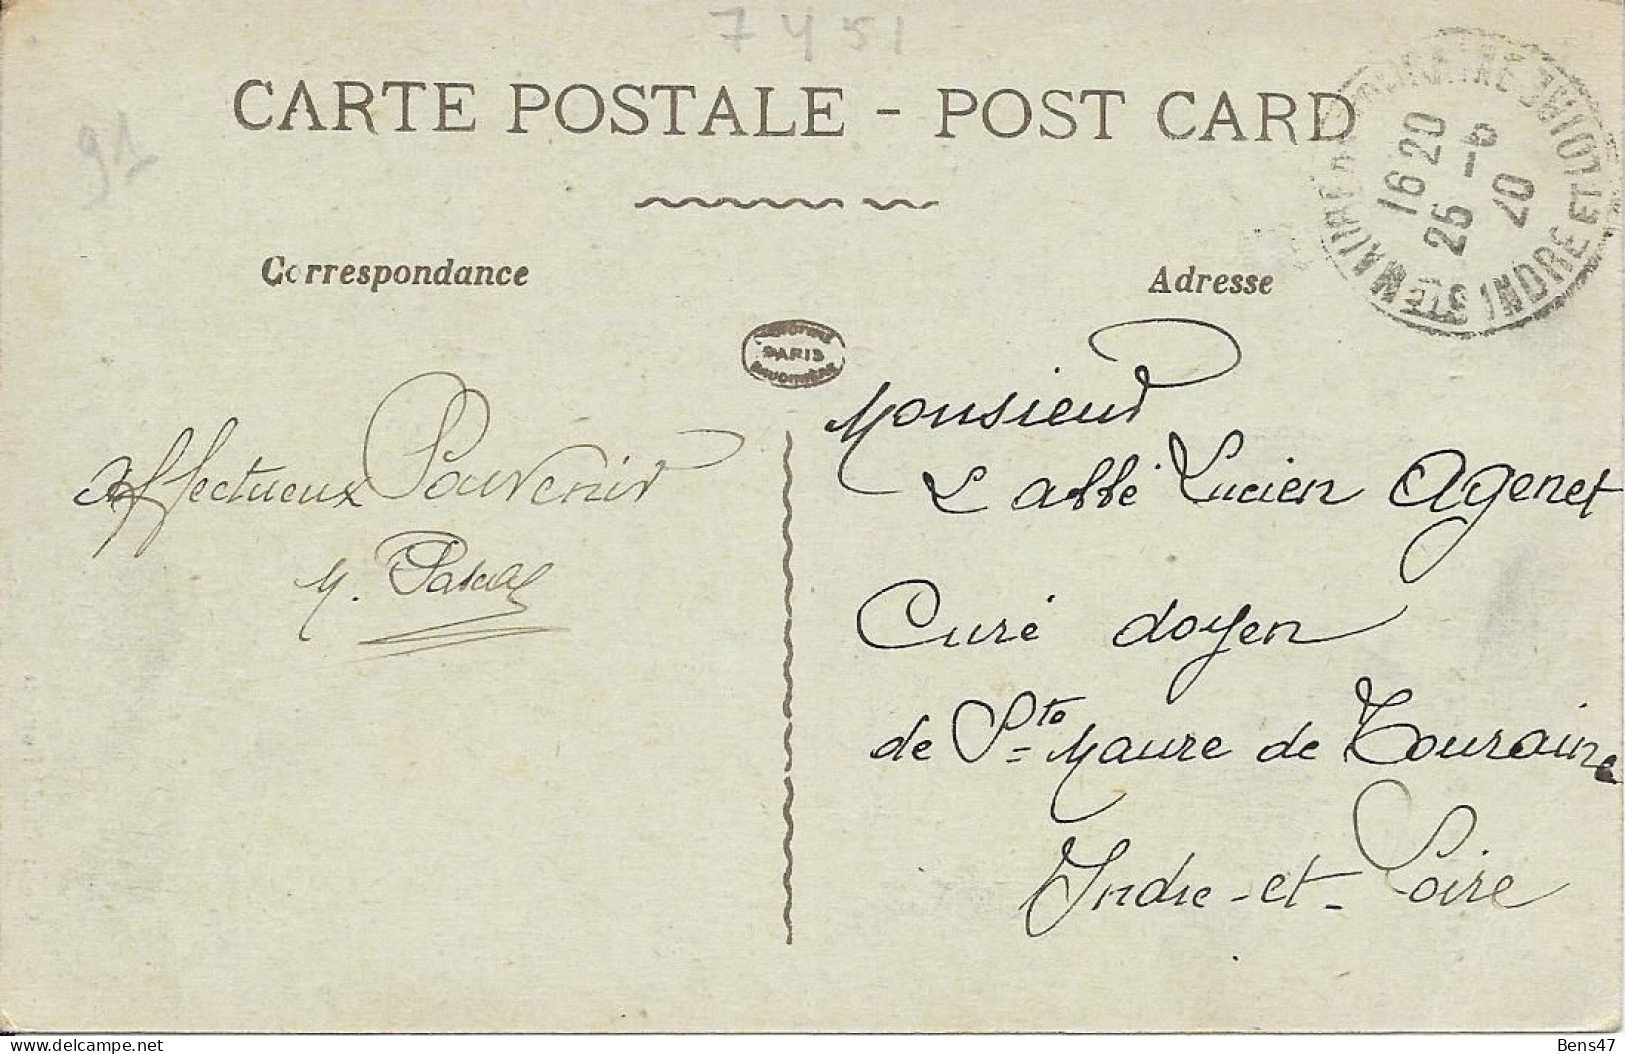 7451
CARTE POSTALE - POST CARD
91
STE MAURE DE TOURAINE
INDRE ET LOIRE
16 20
26 -6
20
Correspondance
Adresse
PARIS
Affectueux Souvenir
M. Pascal
Monsieur
L'abbé Lucien Agenet
Curé doyen
de Ste Maure de Touraine
Indre-et-Loire
Bens47